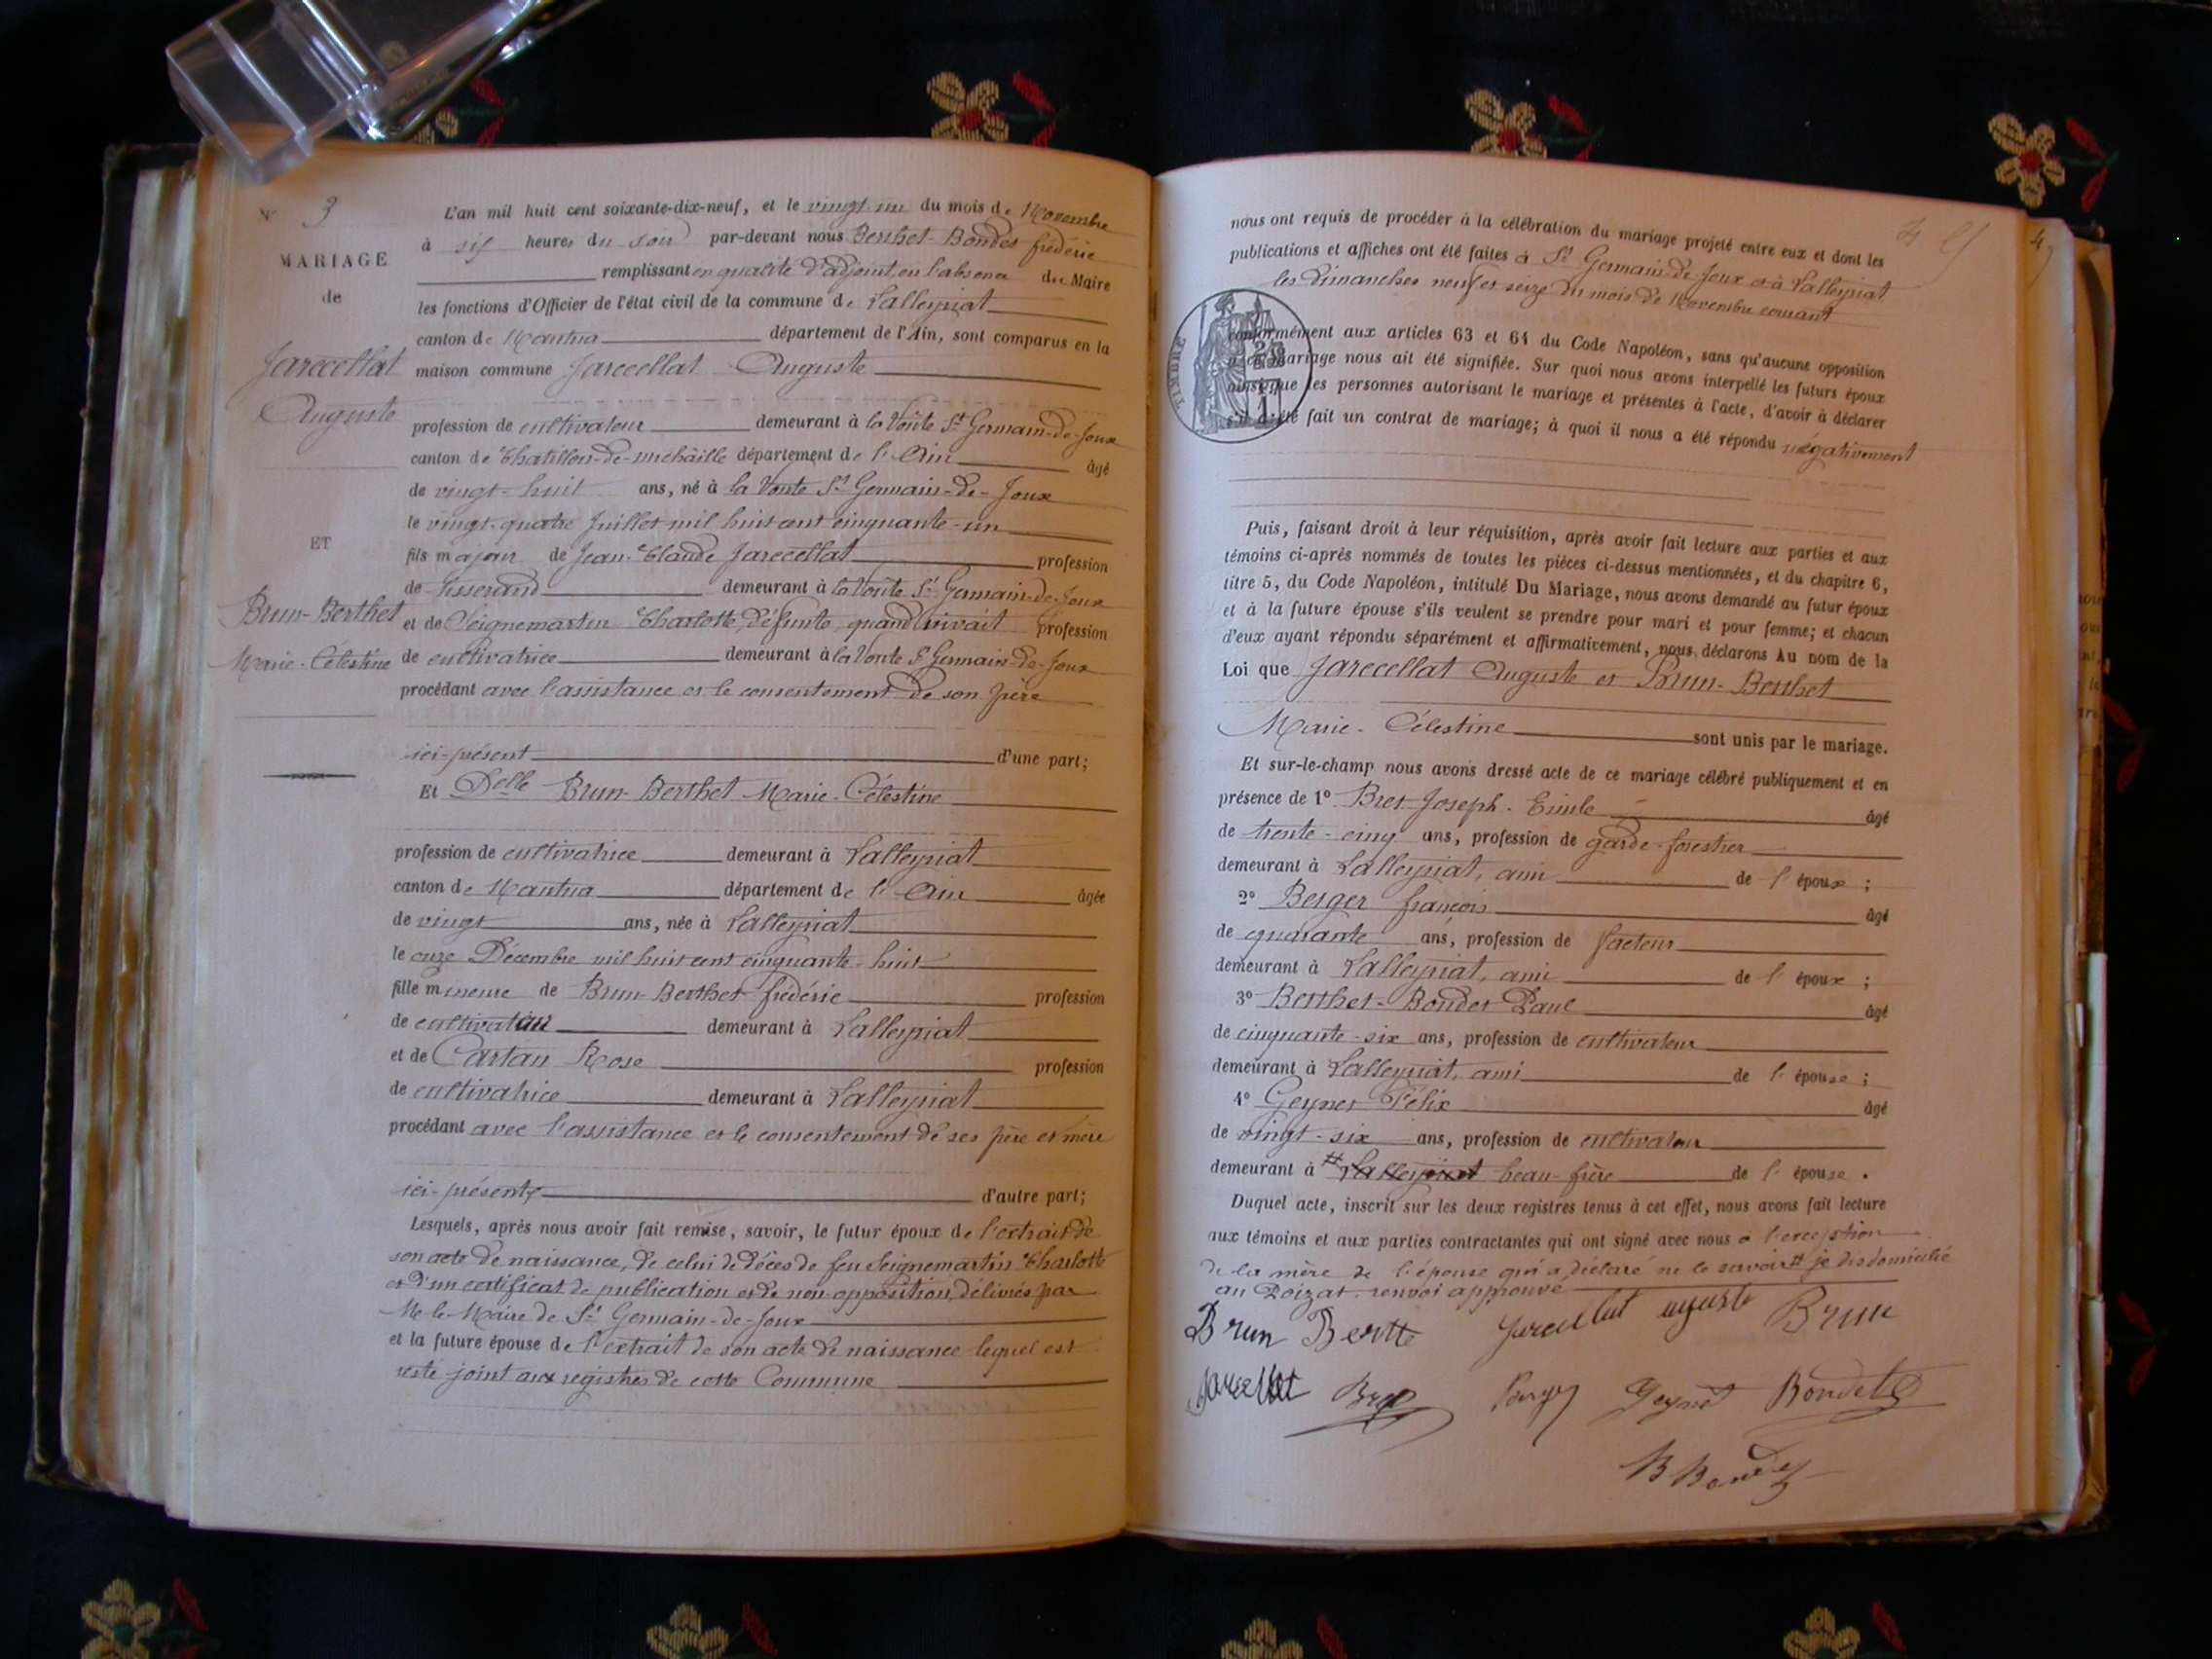 N° 3
MARIAGE
de
Jarcellat
Auguste
ET
Brun-Berthet
Marie-Célestine
L'an mil huit cent soixante-dix-neuf, et le vingt-un du mois de Novembre
à six heures du soir par-devant nous Berthet-Bondet frédéric
remplissant en qualité d'adjoint, en l'absence du Maire
les fonctions d'Officier de l'état civil de la commune de Lalleyriat
canton de Nantua département de l'Ain, sont comparus en la
maison commune Jarcellat Auguste
profession de cultivateur demeurant à la Voûte St Germain-de-Joux
canton de Chatillon-de-michaille département de l'Ain âgé
de vingt-huit ans, né à la Voute St Germain-de-Joux
le vingt-quatre Juillet mil huit cent cinquante-un
fils majeur de Jean-Claude Jarcellat profession
de tisserand demeurant à la Voûte St Germain-de-Joux
et de Seignemartin Charlotte, défunte, quand vivait profession
de cultivatrice demeurant à la Voute St Germain-de-Joux
procédant avec l'assistance et le consentement de son père
ici-présent d'une part;
Et Delle Brun-Berthet Marie-Célestine
profession de cultivatrice demeurant à Lalleyriat
canton de Nantua département de l'Ain âgée
de vingt ans, née à Lalleyriat
le onze Décembre mil huit cent cinquante-huit
fille mineure de Brun-Berthet frédéric profession
de cultivateur demeurant à Lalleyriat
et de Cartan Rose profession
de cultivatrice demeurant à Lalleyriat
procédant avec l'assistance et le consentement de ses père et mère
ici-présents d'autre part;
Lesquels, après nous avoir fait remise, savoir, le futur époux de l'extrait de
son acte de naissance, de celui de décès de feu Seignemartin Charlotte
et d'un certificat de publication et de non-opposition, délivrés par
Mr le Maire de St Germain-de-Joux
et la future épouse de l'extrait de son acte de naissance lequel est
resté joint aux registres de cette Commune
4
nous ont requis de procéder à la célébration du mariage projeté entre eux et dont les
publications et affiches ont été faites à St Germain-de-Joux et à Lalleyriat
les dimanches neuf et seize du mois de Novembre courant
TIMBRE
conformément aux articles 63 et 64 du Code Napoléon, sans qu'aucune opposition
à ce mariage nous ait été signifiée. Sur quoi nous avons interpellé les futurs époux
ainsi que les personnes autorisant le mariage et présentes à l'acte, d'avoir à déclarer
s'il a été fait un contrat de mariage; à quoi il nous a été répondu négativement
Puis, faisant droit à leur réquisition, après avoir fait lecture aux parties et aux
témoins ci-après nommés de toutes les pièces ci-dessus mentionnées, et du chapitre 6,
titre 5, du Code Napoléon, intitulé Du Mariage, nous avons demandé au futur époux
et à la future épouse s'ils veulent se prendre pour mari et pour femme; et chacun
d'eux ayant répondu séparément et affirmativement, nous déclarons Au nom de la
Loi que Jarcellat Auguste et Brun-Berthet
Marie-Célestine sont unis par le mariage.
Et sur-le-champ nous avons dressé acte de ce mariage célébré publiquement et en
présence de 1° Bret Joseph-Emile âgé
de trente-cinq ans, profession de garde-forestier
demeurant à Lalleyriat, ami de l'époux ;
2° Berger françois âgé
de quarante ans, profession de facteur
demeurant à Lalleyriat, ami de l'époux ;
3° Berthet-Bondet Paul âgé
de cinquante-six ans, profession de cultivateur
demeurant à Lalleyriat, ami de l'épouse ;
4° Geynet Félix âgé
de vingt-six ans, profession de cultivateur
demeurant à # Lalleyriat beau-frère de l'épouse.
Duquel acte, inscrit sur les deux registres tenus à cet effet, nous avons fait lecture
aux témoins et aux parties contractantes qui ont signé avec nous à l'exception
de la mère de l'épouse qui a déclaré ne le savoir # je dis domicilié
au Poizat. renvoi approuvé
Brun Berthe Jarcellat auguste Brun
Jarcellat Bret Berger Geynet Bondet
B Bondet